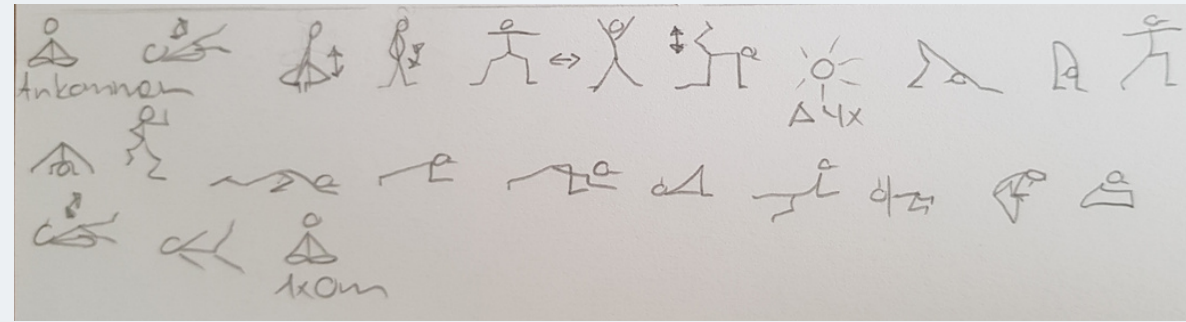 Ankommen
Δ 4x
1x Om